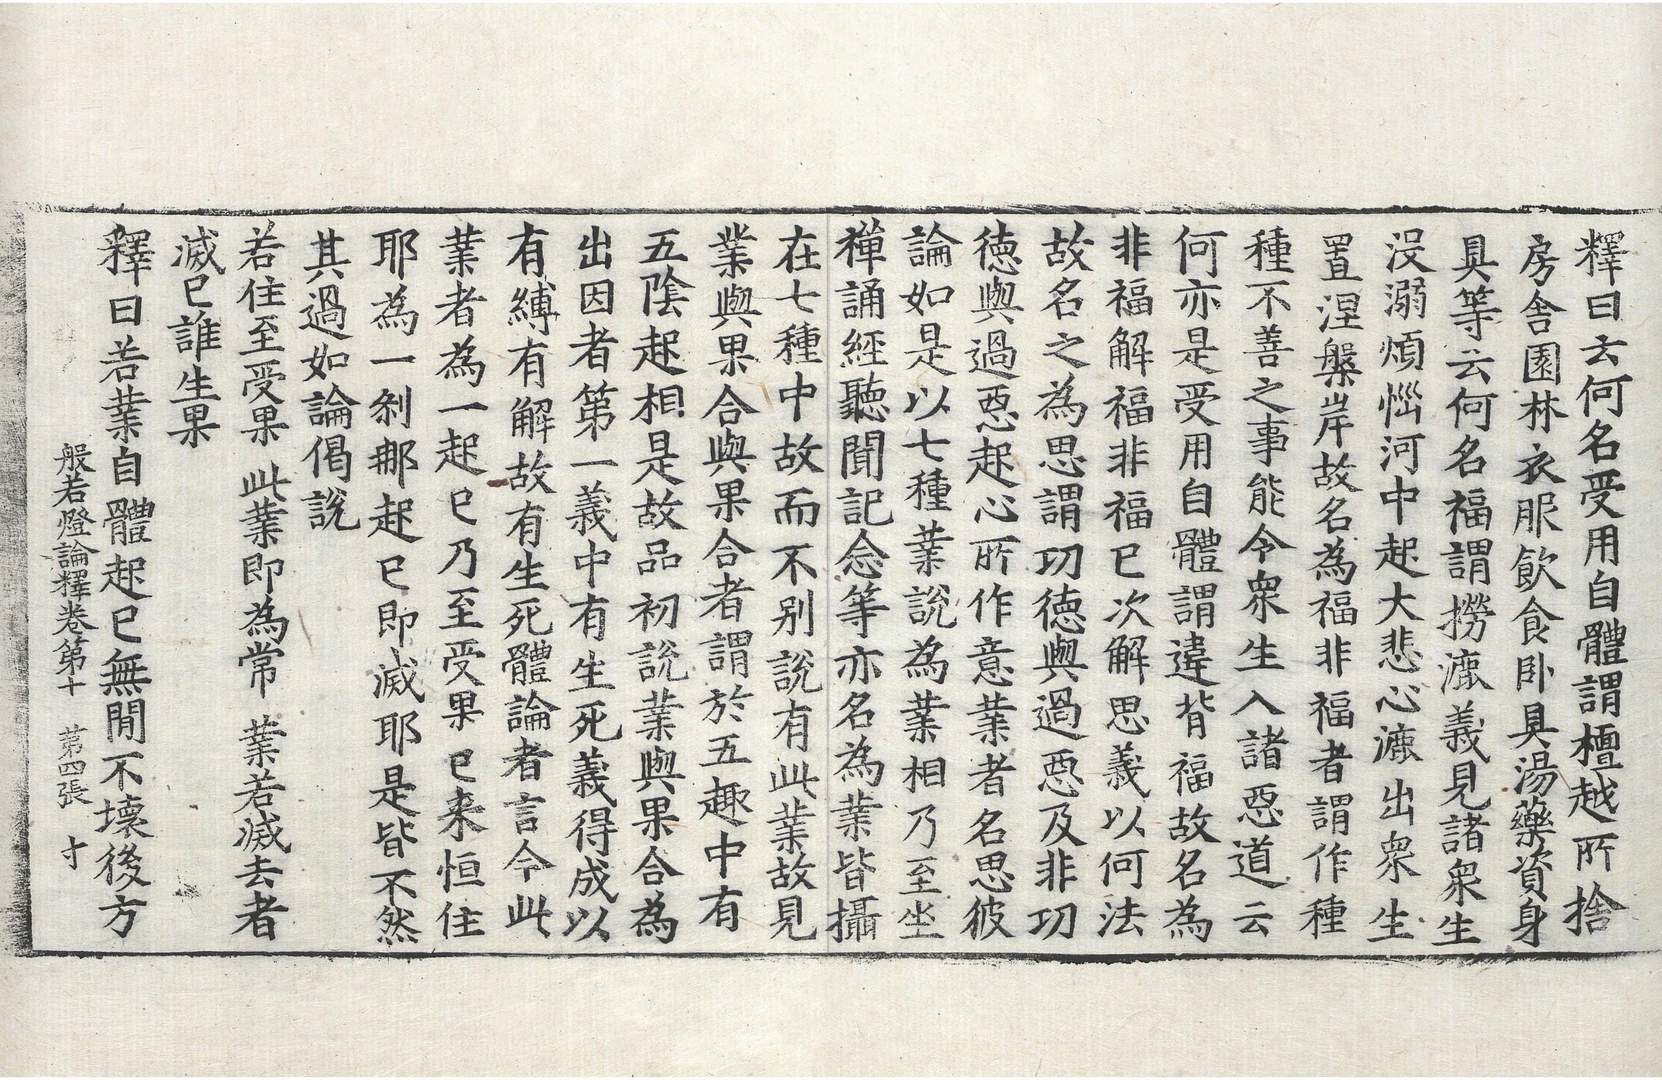 釋曰云何名受用自體謂檀越所捨
房舎園林衣服飲食卧具湯藥資身
具等云何名福謂撈漉義見諸衆生
没溺煩惱河中起大悲心漉出衆生
置涅槃岸故名為福非福者謂作種
種不善之事能令衆生入諸惡道云
何亦是受用自體謂違背福故名為
非福解福非福已次解思義以何法
故名之為思謂功德與過惡及非功
德與過惡起心所作意業者名思彼
論如是以七種業說為業相乃至坐
禪誦經聽聞記念等亦名為業皆攝
在七種中故而不別說有此業故見
業與果合與果合者謂於五趣中有
五陰起相是故品初說業與果合為
出因者第一義中有生死義得成以
有縛有解故有生死體論者言今此
業者為一起已乃至受果已来恒住
耶為一剎那起已即滅耶是皆不然
其過如論偈說
若住至受果 此業即為常 業若滅去者
滅已誰生果
般若燈論釋卷第十 第四張 寸
釋曰若業自體起已無間不壞後方